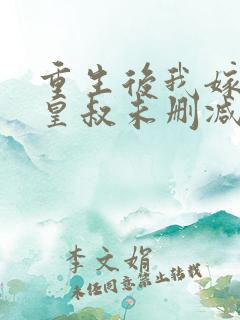 重生后我嫁
皇叔未删减
李文娟
未经同意禁止转载